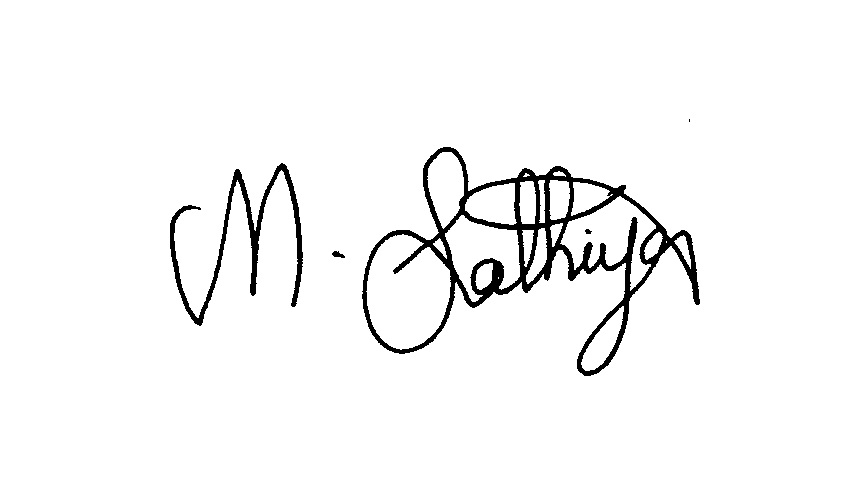 M. Sathiya